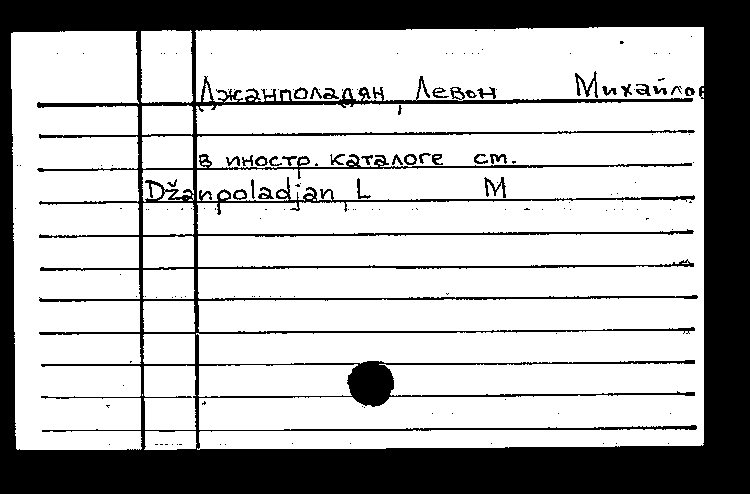 Джанполадян, Левон Михайлов
в иностр. каталоге см.
Džanpoladjan, L M